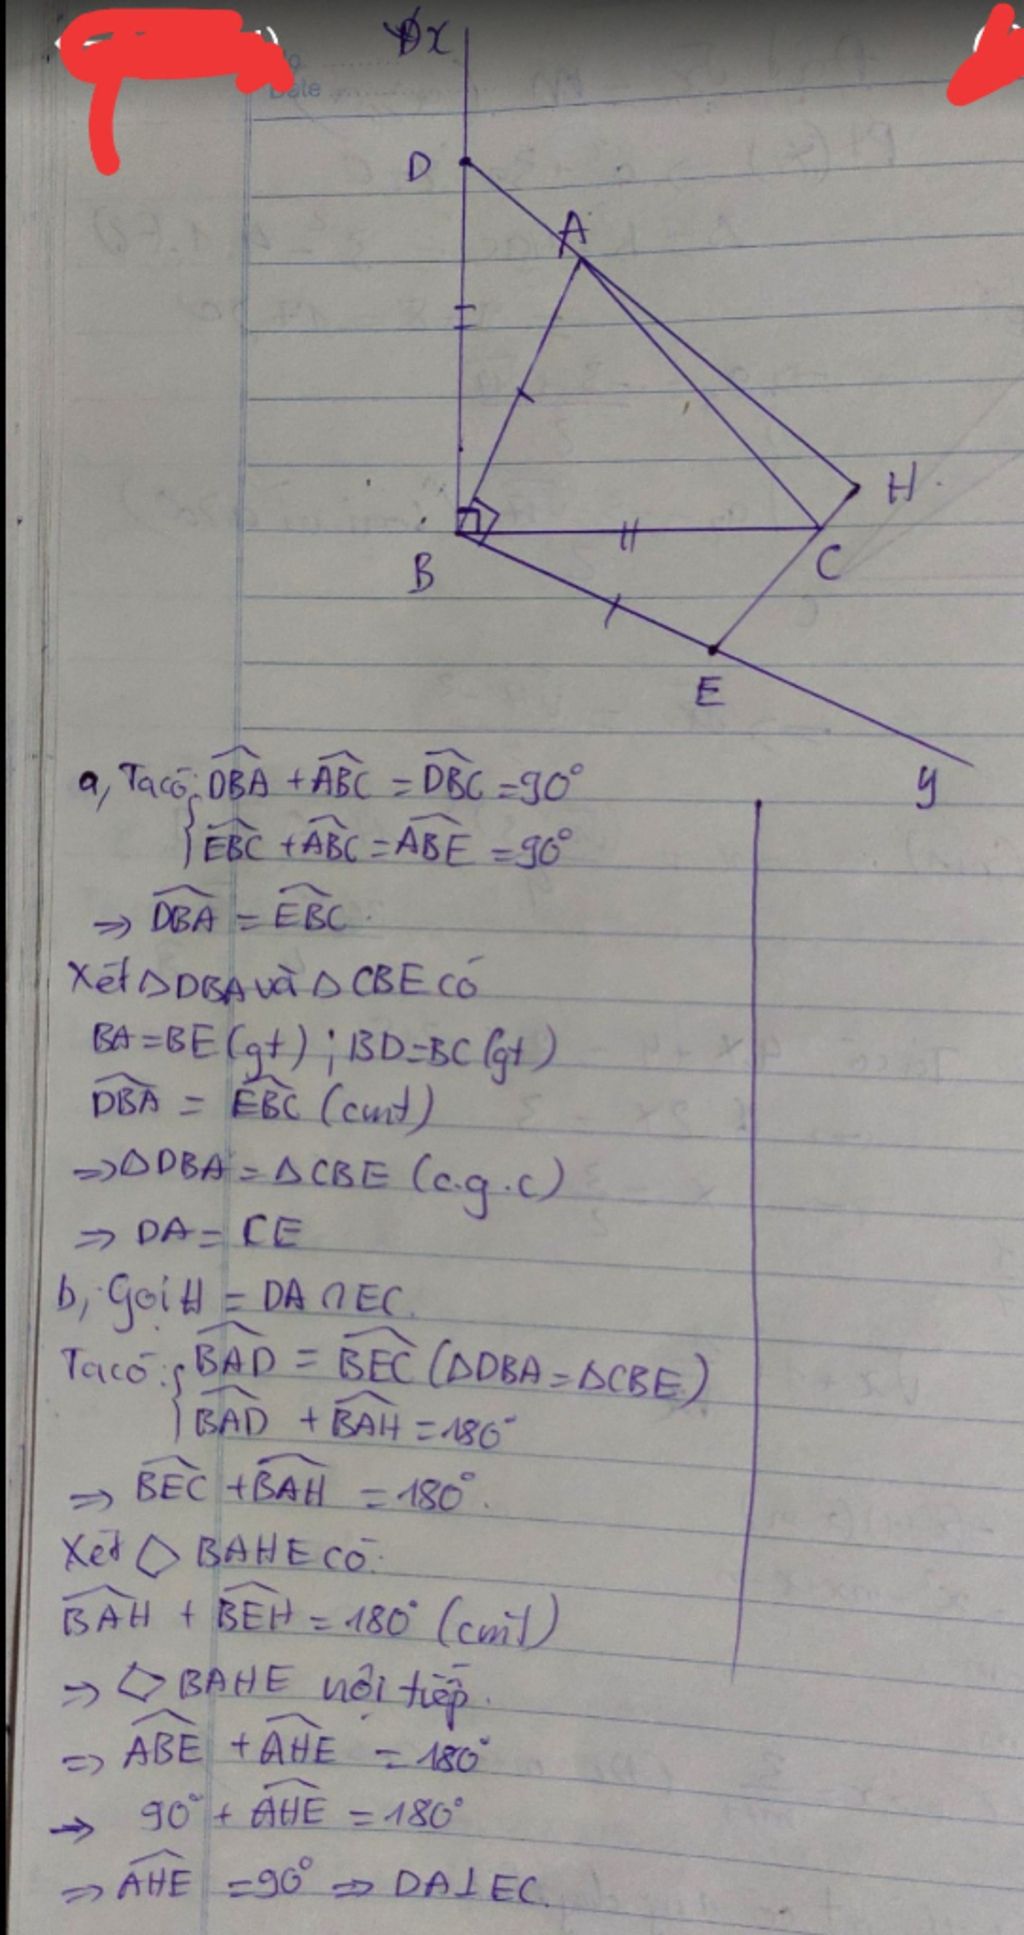 No.
Date
x
D
A
H
B
C
E
y
a, Ta có: DBA + ABC = DBC = 90°
EBC + ABC = ABE = 90°
⇒ DBA = EBC.
Xét △DBA và △CBE có
BA=BE (gt) ; BD=BC (gt)
DBA = EBC (cmt)
⇒ △DBA = △CBE (c.g.c)
⇒ DA = CE
b, Gọi H = DA ∩ EC.
Ta có: BAD = BEC (△DBA = △CBE)
BAD + BAH = 180°
⇒ BEC + BAH = 180°.
Xét ◇ BAHE có:
BAH + BEH = 180° (cmt)
⇒ ◇ BAHE nội tiếp.
⇒ ABE + AHE = 180°
→ 90° + AHE = 180°
⇒ AHE = 90° ⇒ DA⊥EC.